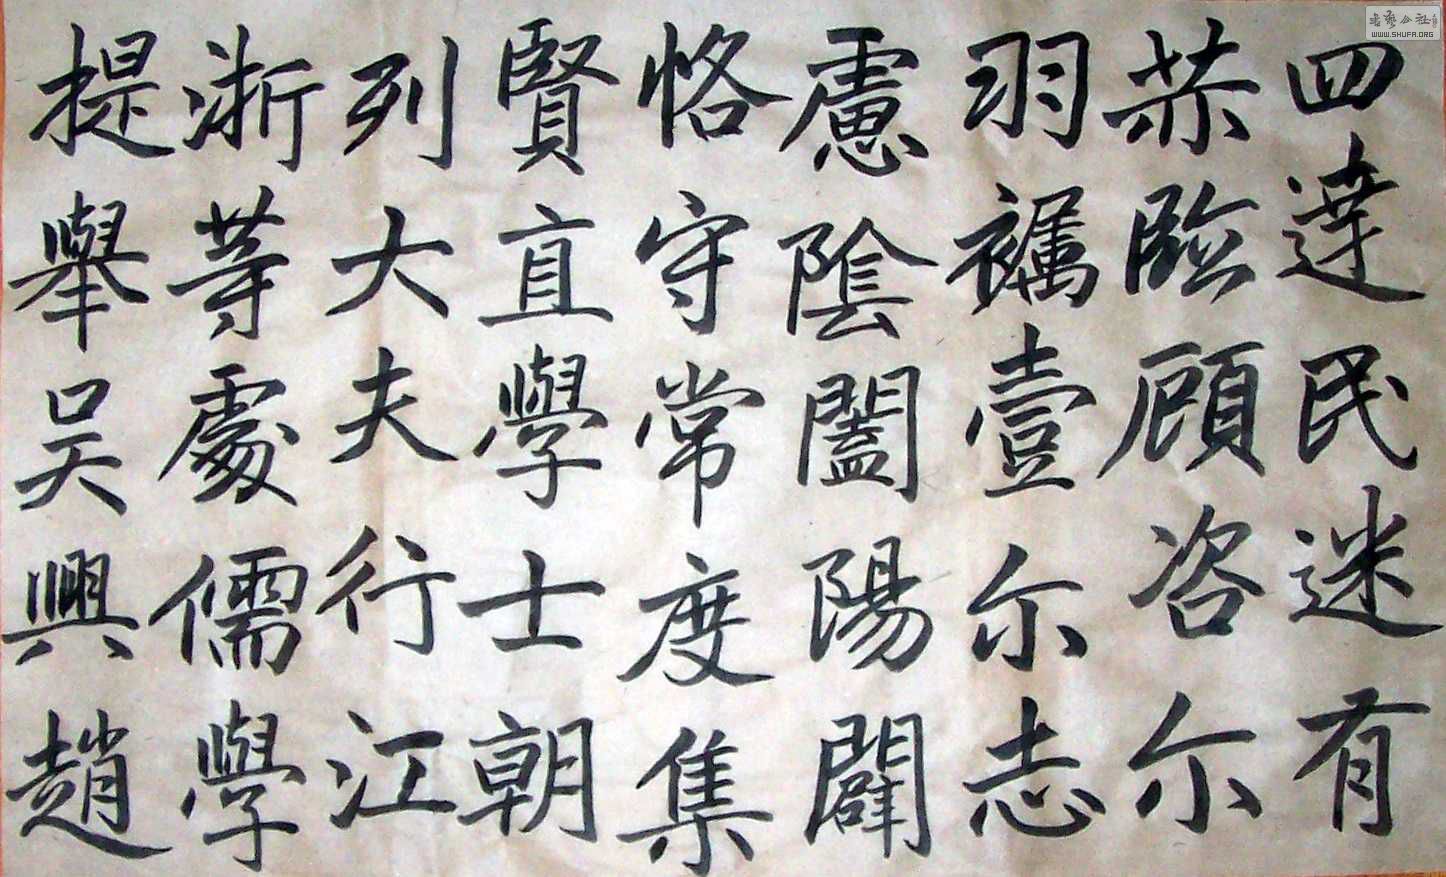 四達民迷有
赫臨顧咨尒
羽襡壹尒志
慮陰闔陽闢
恪守常度集
賢直學士朝
列大夫行江
浙等處儒學
提舉吳興趙
書藝公社
WWW.SHUFA.ORG